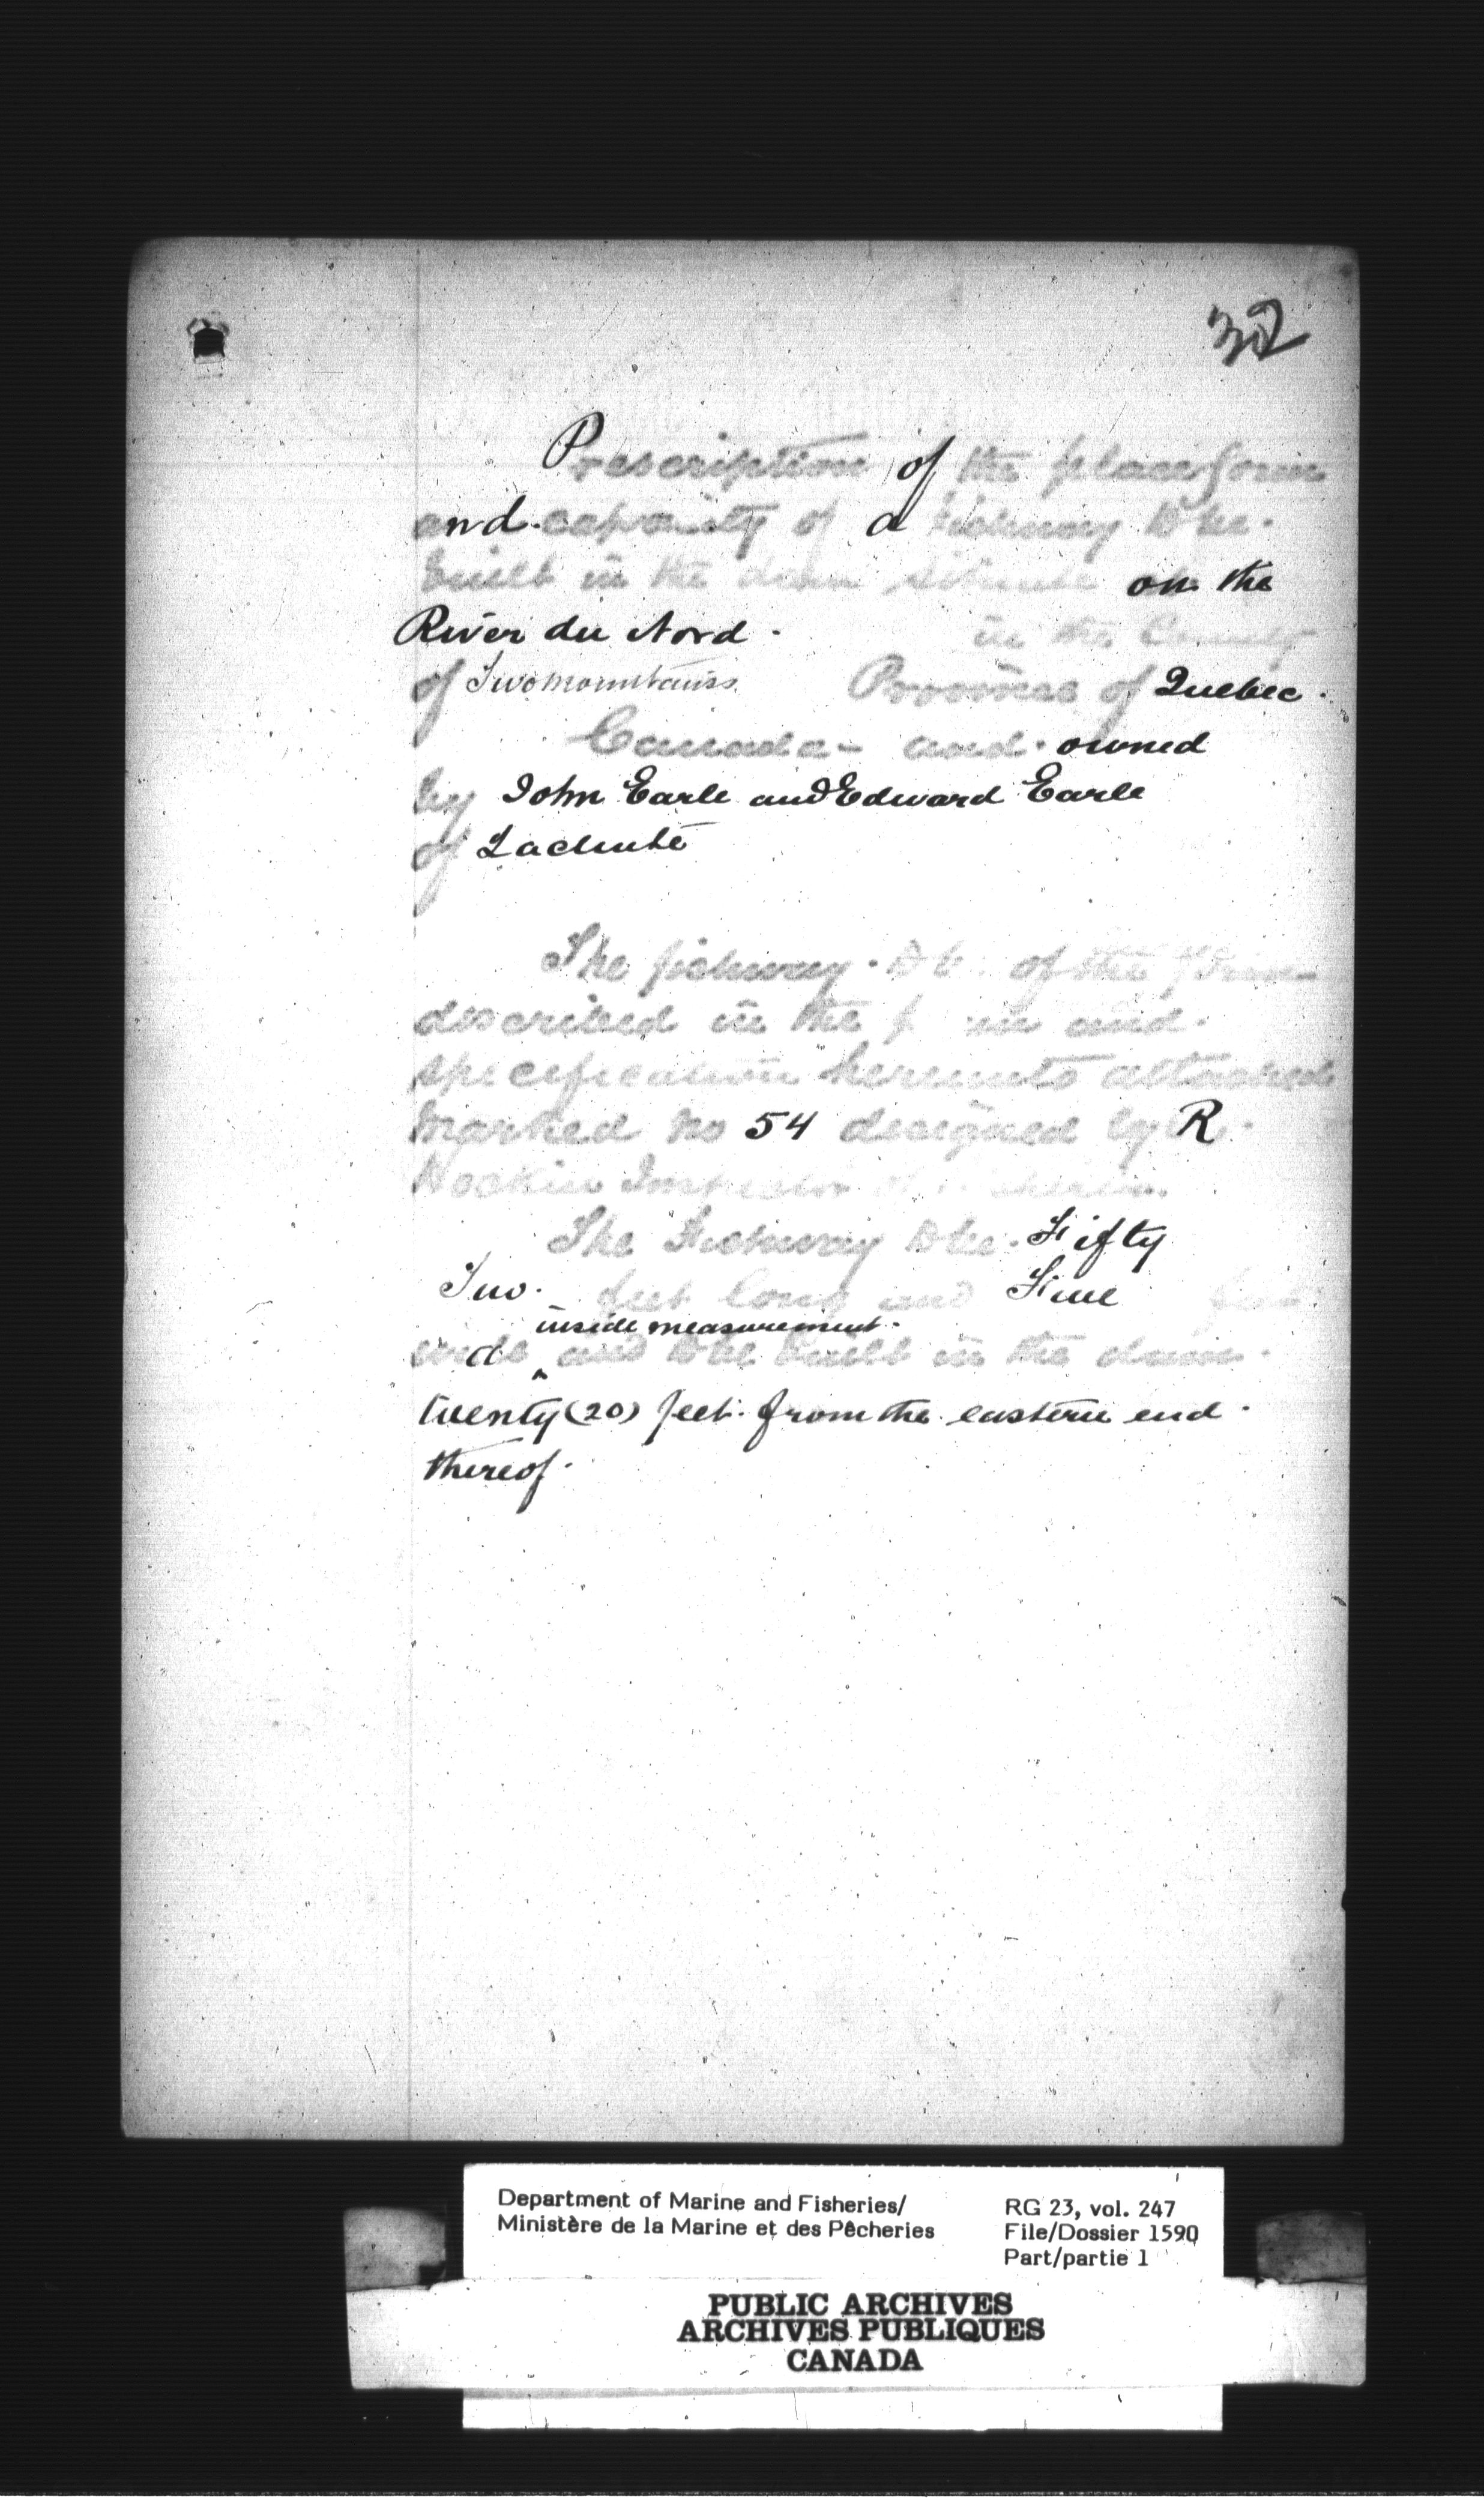 32
Prescription of the place form
and capacity of a Fishway to be
built in the dam situate on the
River du Nord. in the County
of Two mountains Province of Quebec.
Canada - and owned
by John Earle and Edward Earle
of Lachute
The fishway to be of the form
described in the and
specification hereunto attached
Marked No 54 designed by R
Inspector
The Fishway to be Fifty
Two. feet long and Five feet
inside measurement.
wide and to be built in the dam.
twenty (20) feet from the eastern end.
thereof.
Department of Marine and Fisheries/
Ministère de la Marine et des Pêcheries
RG 23, vol. 247
File/Dossier 1590
Part/partie 1
PUBLIC ARCHIVES
ARCHIVES PUBLIQUES
CANADA